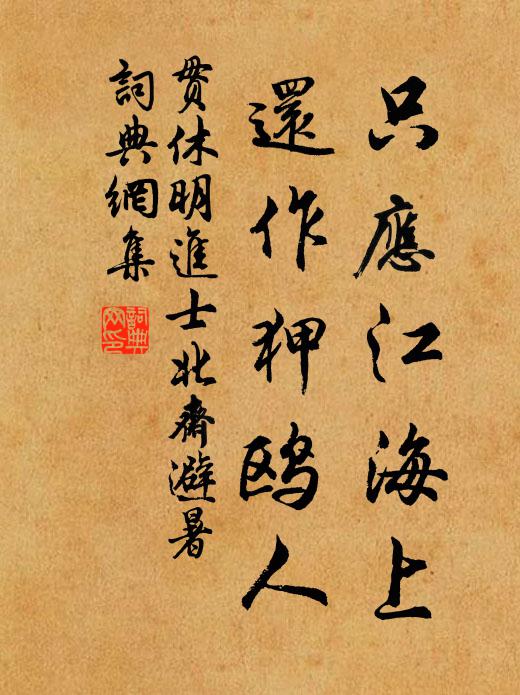 只應江海上
還作狎鷗人
貫休明進士北齋避暑
詞典網集
詞典網印